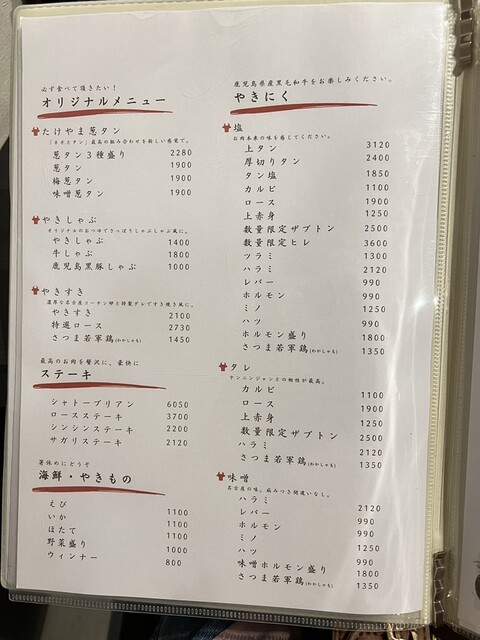 必ず食べて頂きたい！
オリジナルメニュー
たけやま葱タン
「ネギとタン」最高の組み合わせを新しい感覚で。
葱タン３種盛り 2280
葱タン 1900
梅葱タン 1900
味噌葱タン 1900
やきしゃぶ
オリジナルのおつゆでさっぱりしゃぶしゃぶ風に。
やきしゃぶ 1400
牛しゃぶ 1800
鹿児島黒豚しゃぶ 1000
やきすき
濃厚な名古屋コーチン卵と特製ダレですき焼き風に。
やきすき 2100
特選ロース 2730
さつま若軍鶏(わかしゃも) 1450
最高のお肉を贅沢に、豪快に
ステーキ
シャトーブリアン 6050
ロースステーキ 3700
シンシンステーキ 2200
サガリステーキ 2120
箸休めにどうぞ
海鮮・やきもの
えび 1100
いか 1100
ほたて 1100
野菜盛り 1000
ウィンナー 800
鹿児島県産黒毛和牛をお楽しみください。
やきにく
塩
お肉本来の味を感じてください。
上タン 3120
厚切りタン 2400
タン塩 1850
カルビ 1100
ロース 1900
上赤身 1250
数量限定ザブトン 2500
数量限定ヒレ 3600
ツラミ 1300
ハラミ 2120
レバー 990
ホルモン 990
ミノ 1250
ハツ 990
ホルモン盛り 1800
さつま若軍鶏(わかしゃも) 1350
タレ
ヤンニンジャンとの相性が最高。
カルビ 1100
ロース 1900
上赤身 1250
数量限定ザブトン 2500
ハラミ 2120
さつま若軍鶏(わかしゃも) 1350
味噌
名古屋の味。病みつき間違いなし。
ハラミ 2120
レバー 990
ホルモン 990
ミノ 1250
ハツ 990
味噌ホルモン盛り 1800
さつま若軍鶏(わかしゃも) 1350